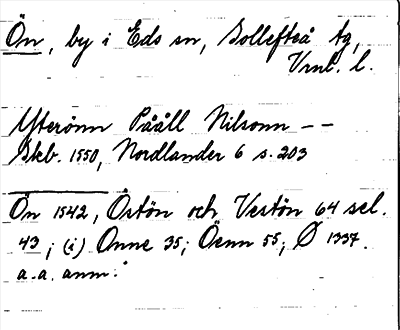 Ön, by i Eds sn, Sollefteå tg,
Vrnl. l.
Ytterönn Påäll Nilsonn – –
Skb. 1550, Nordlander 6 s. 203
Ön 1542, Östön och Vestön 64 sel.
43; (i) Onne 35; Öenn 55; Ø 1337.
a.a. anm.